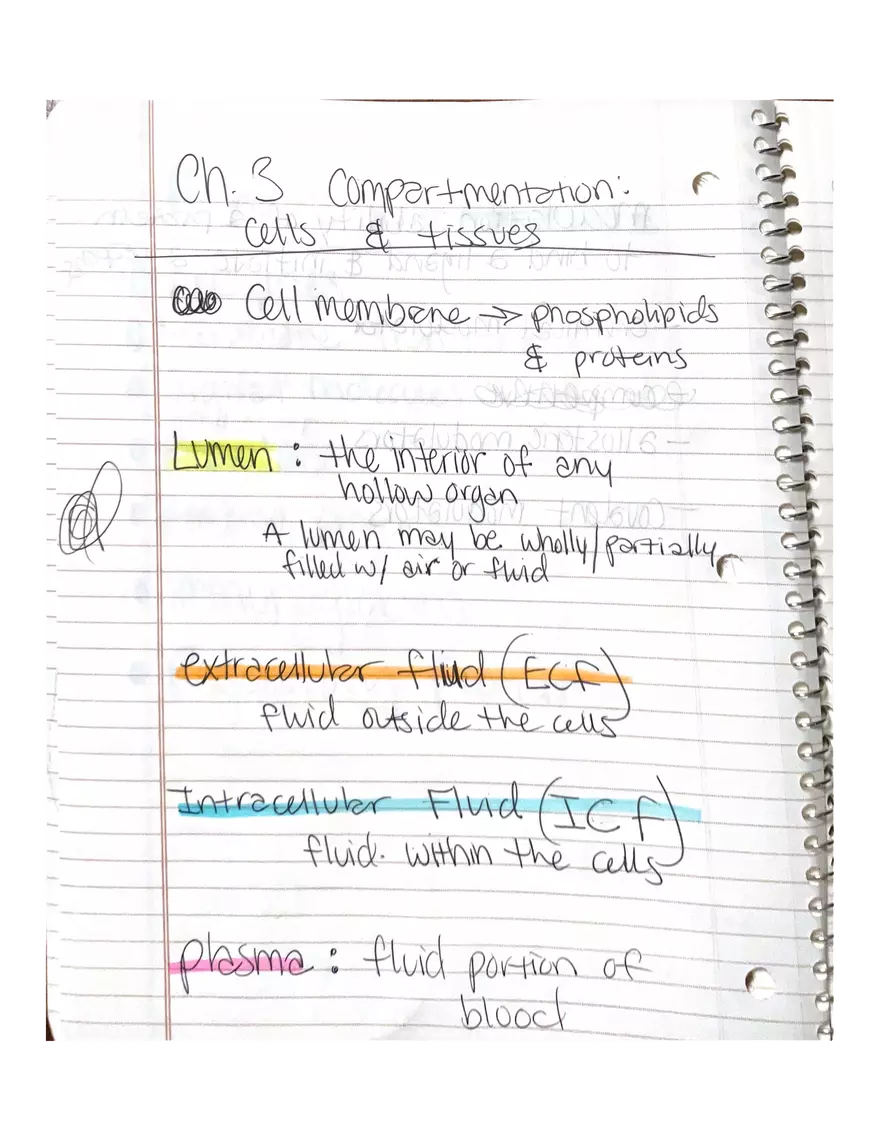 Ch. 3 Compartmentation:
Cells & tissues
Cell membrane → phospholipids
& proteins
Lumen : the interior of any
hollow organ
A lumen may be wholly/partially
filled w/ air or fluid
extracellular fluid (ECF)
fluid outside the cells
Intracellular Fluid (ICF)
fluid within the cells
plasma : fluid portion of
blood